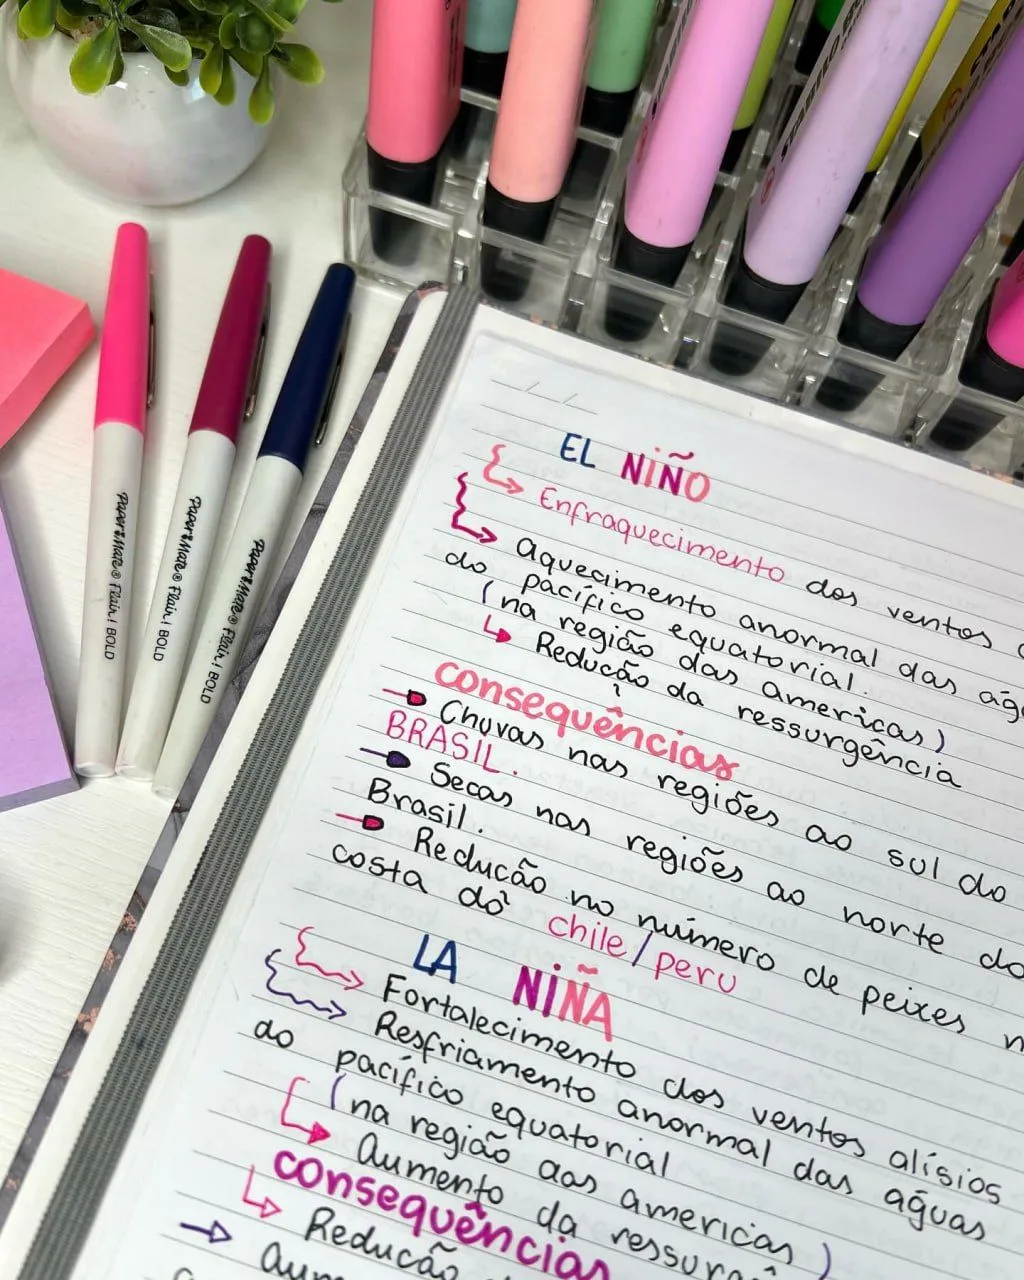 Paper Mate® Flair! BOLD
Paper Mate® Flair! BOLD
Paper Mate® Flair! BOLD
STABILO BOSS
EL NIÑO
Enfraquecimento dos ventos
aquecimento anormal das
do pacífico equatorial.
(na região das americas)
Redução da ressurgência
consequências
Chuvas nas regiões ao sul do
BRASIL.
Secas nas regiões ao norte do
Brasil.
Redução no número de peixes
costa do chile/peru
LA NIÑA
Fortalecimento dos ventos alísios
Resfriamento anormal das águas
do pacífico equatorial
(na região das americas)
Aumento da
consequências
Redução